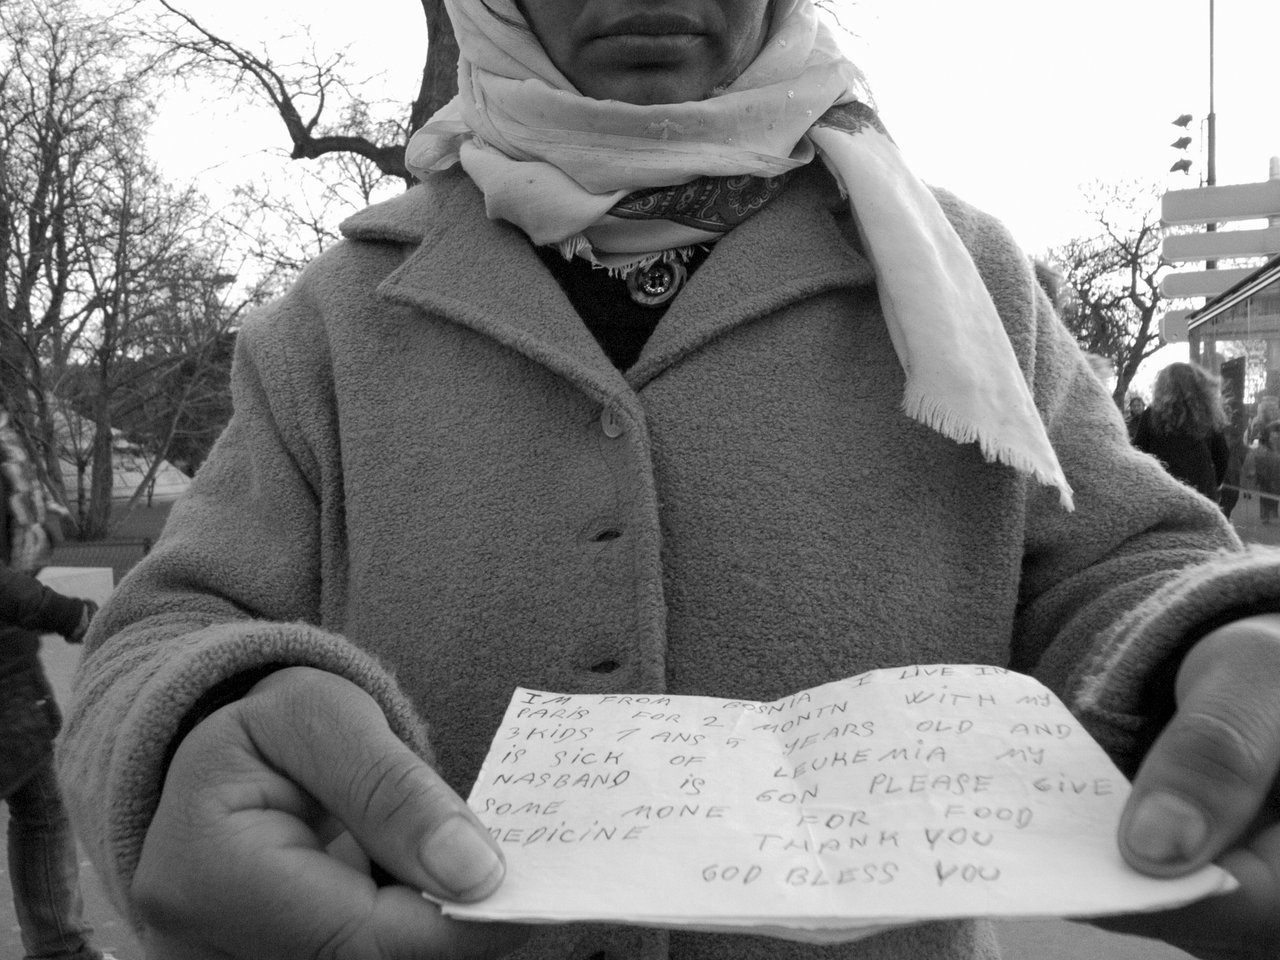 IM FROM BOSNIA I LIVE IN
PARIS FOR 2 MONTN WITH MY
3 KIDS 7 ANS 5 YEARS OLD AND
IS SICK OF LEUKEMIA MY
NASBAND IS GON PLEASE GIVE
SOME MONE FOR FOOD
MEDICINE THANK YOU
GOD BLESS YOU